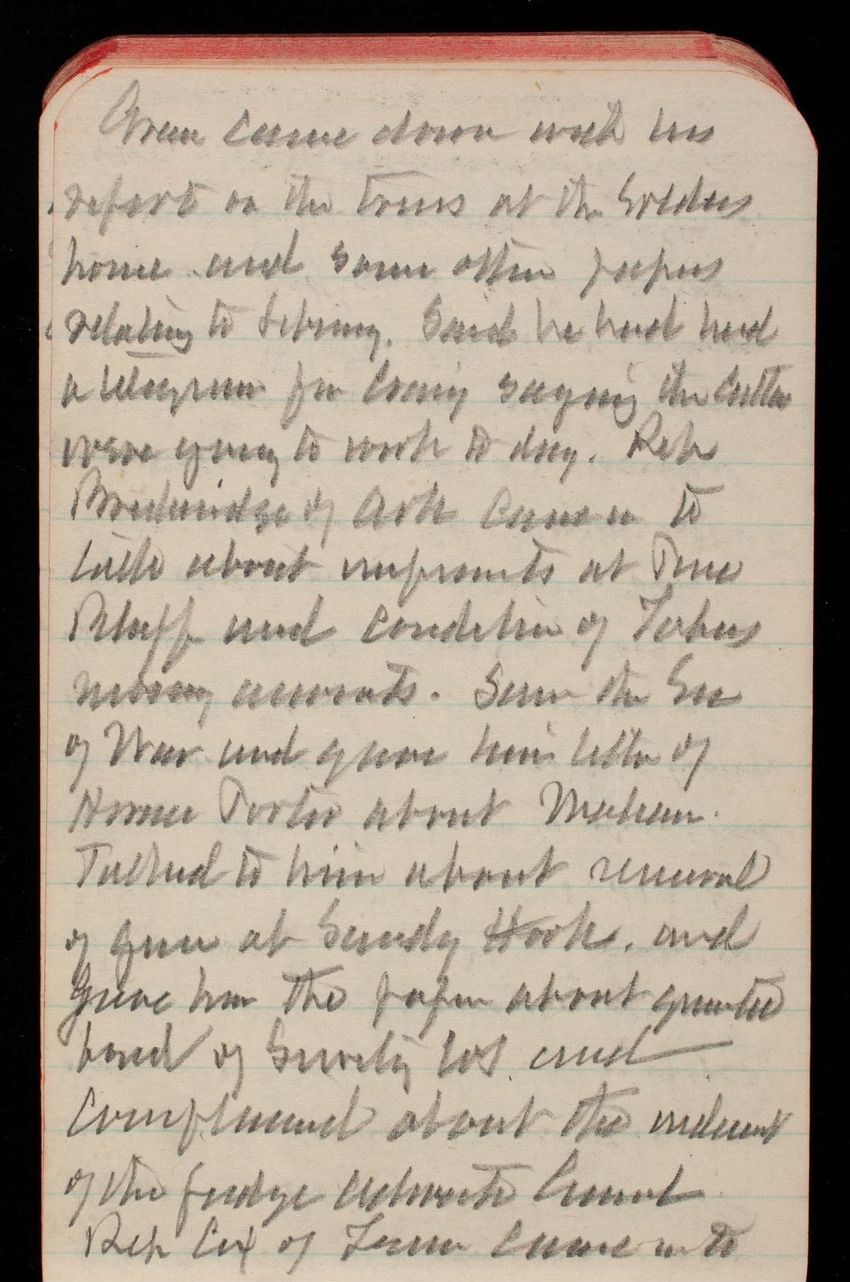 Green came down with his
report on the trees at the Soldiers
home and some other papers
relating to Sebring. Said he had had
a telegram fm Craig saying the Cutters
were going to work to day. Rep
Breckinridge of Ark came in to
talk about improvmts at Pine
Bluff and condition of Tobeys
money accounts. Saw the Sec
of War and gave him letter of
Horace Porter about Mahan.
Talked to him about removal
of gun at Sandy Hook. and
Gave him the paper about guarantee
bond of Surety Cos and
complained about the
of the Judge Advocate Genrl
Rep Cox of Tenn came in to